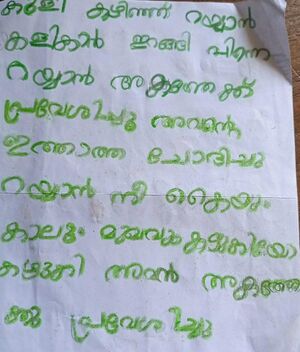 കളി കഴിഞ്ഞ് റയ്യാൻ
കളികാൻ ഇറങ്ങി പിന്നെ
റയ്യാൻ അകത്തേക്ക്
പ്രവേശിച്ചു അവന്റെ
ഇത്താത്ത ചോദിച്ചു
റയ്യാൻ നീ കൈയും
കാലും മുഖവും കഴുകിയോ
കഴുകി അവൻ അകത്തേ
ക്കു പ്രവേശിച്ചു